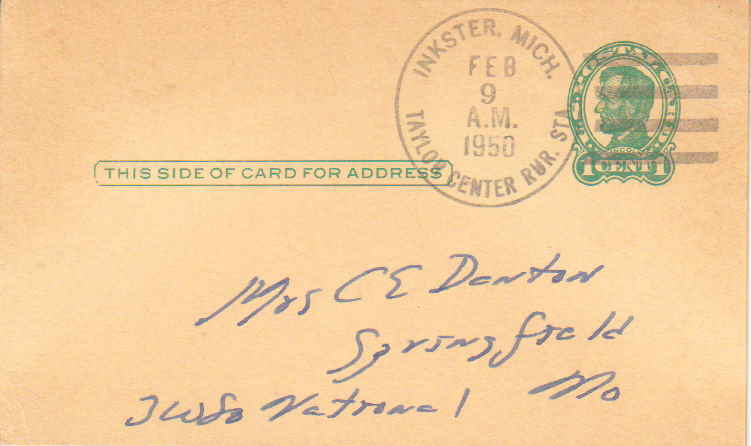 INKSTER, MICH.
FEB
9
A.M.
1950
TAYLOR CENTER RUR. STA.
1 CENT 1
THIS SIDE OF CARD FOR ADDRESS
Mrs C E Danton
Springfield
National Mo